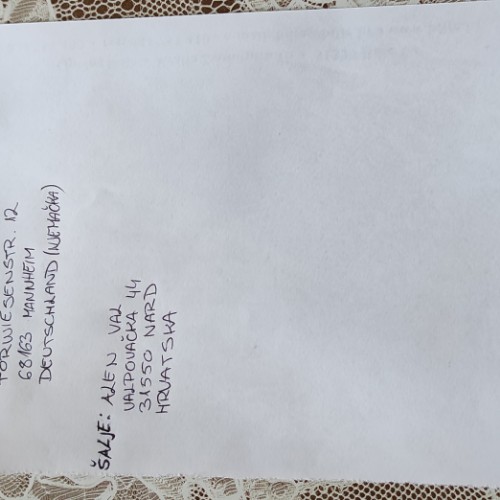 FORWIESENSTR. 12
68163 MANNHEIM
DEUTSCHLAND (NJEMAČKA)
ŠALJE: ALEN VAL
VALPOVAČKA 44
31550 NARD
HRVATSKA